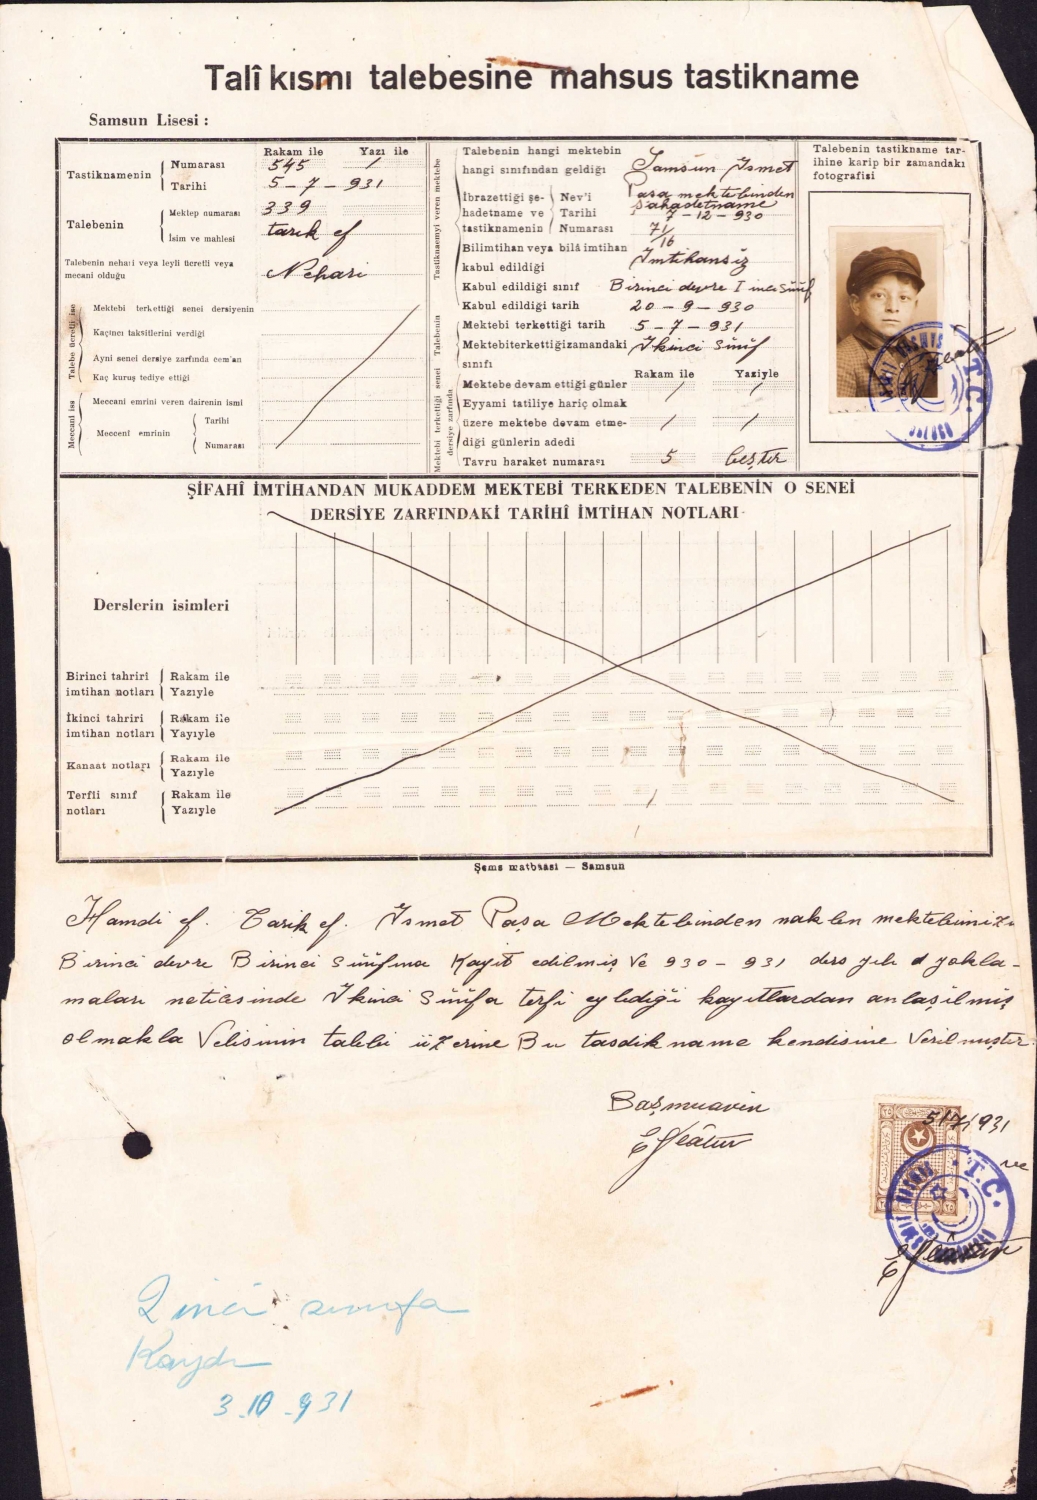 Talî kısmı talebesine mahsus tastikname
Samsun Lisesi :
Rakam ile Yazı ile
Tastiknamenin
Numarası 545 /
Tarihi 5 - 7 - 931
Talebenin
Mektep numarası 339
İsim ve mahlesi tarık ef
Talebenin neharî veya leyli ücretli veya
mecani olduğu Nehari
Talebe ücretli ise
Mektebi terkettiği senei dersiyenin
Kaçıncı taksitlerini verdiği
Ayni senei dersiye zarfında cem'an
Kaç kuruş tediye ettiği
Meccani ise
Meccani emrini veren dairenin ismi
Meccenî emrinin
Tarihi
Numarası
Tastiknaemyi veren mektebe
Talebenin hangi mektebin
hangi sınıfından geldiği Samsun İsmet
Paşa mektebinden
İbrazettiği şe-
hadetname ve
tastiknamenin
Nev'i şahadetname
Tarihi 7 - 12 - 930
Numarası 71/16
Bilimtihan veya bilâ imtihan
kabul edildiği İmtihansız
Kabul edildiği sınıf Birinci devre I inci sınıf
Kabul edildiği tarih 20 - 9 - 930
Talebenin
Mektebi terkettiği tarih 5 - 7 - 931
Mektebiterkettiğizamandaki İkinci sınıf
sınıfı
Mektebi terkettiği senei
dersiye zarfında
Rakam ile Yaziyle
Mektebe devam ettiği günler / /
Eyyami tatiliye hariç olmak
üzere mektebe devam etme- / /
diği günlerin adedi
Tavru haraket numarası 5 beştir
Talebenin tastikname tar-
ihine karip bir zamandaki
fotografisi
T.C.
ŞİFAHÎ İMTİHANDAN MUKADDEM MEKTEBİ TERKEDEN TALEBENİN O SENEİ
DERSİYE ZARFINDAKİ TARİHÎ İMTİHAN NOTLARI
Derslerin isimleri
Birinci tahrirî
imtihan notları
Rakam ile
Yazıyle
İkinci tahriri
imtihan notları
Rakam ile
Yayıyle
Kanaat notları
Rakam ile
Yazıyle
Terfii sınıf
notları
Rakam ile
Yazıyle
Şems matbaası — Samsun
Hamdi ef. Tarik ef. İsmet Paşa Mektebinden naklen mektebimize
Birinci devre Birinci sınıfına Kayıt edilmiş ve 930 - 931 ders yılı yokla-
maları neticesinde İkinci sınıfa terfi eylediği kayıtlardan anlaşılmış
olmakla Velisinin talebi üzerine Bu tasdikname kendisine Verilmiştir.
Başmuavin
5/7/931
T.C.
2inci sınıfa
Kaydı
3.10.931